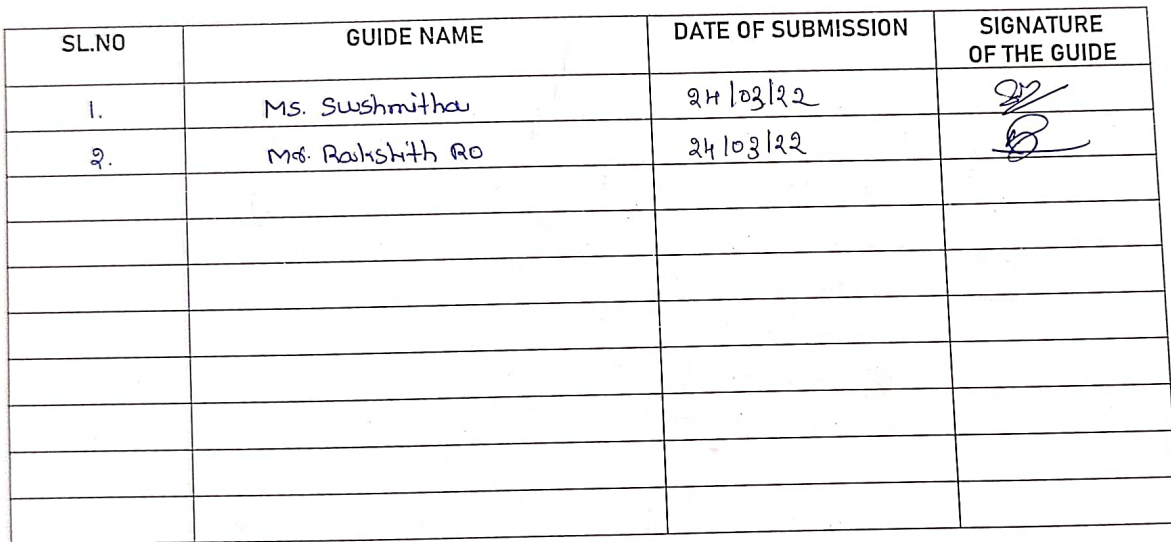 SL.NO GUIDE NAME DATE OF SUBMISSION SIGNATURE
OF THE GUIDE
1. Ms. Sushmitha 24/03/22
2. Mr. Rakshith RO 24/03/22